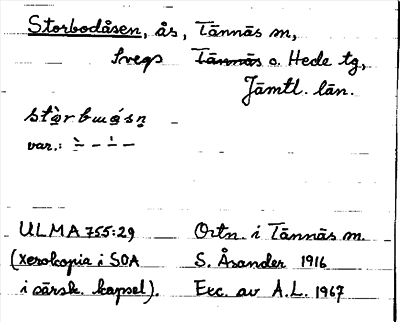 Storbodåsen, ås, Tännäs sn,
Svegs Tännäs o. Hede tg,
Jämtl. län.
var.:
ULMA 755:29 Ortn. i Tännäs sn.
(xerokopia i SOA S. Åsander 1916
i särsk. kapsel). Exc. av A.L. 1967